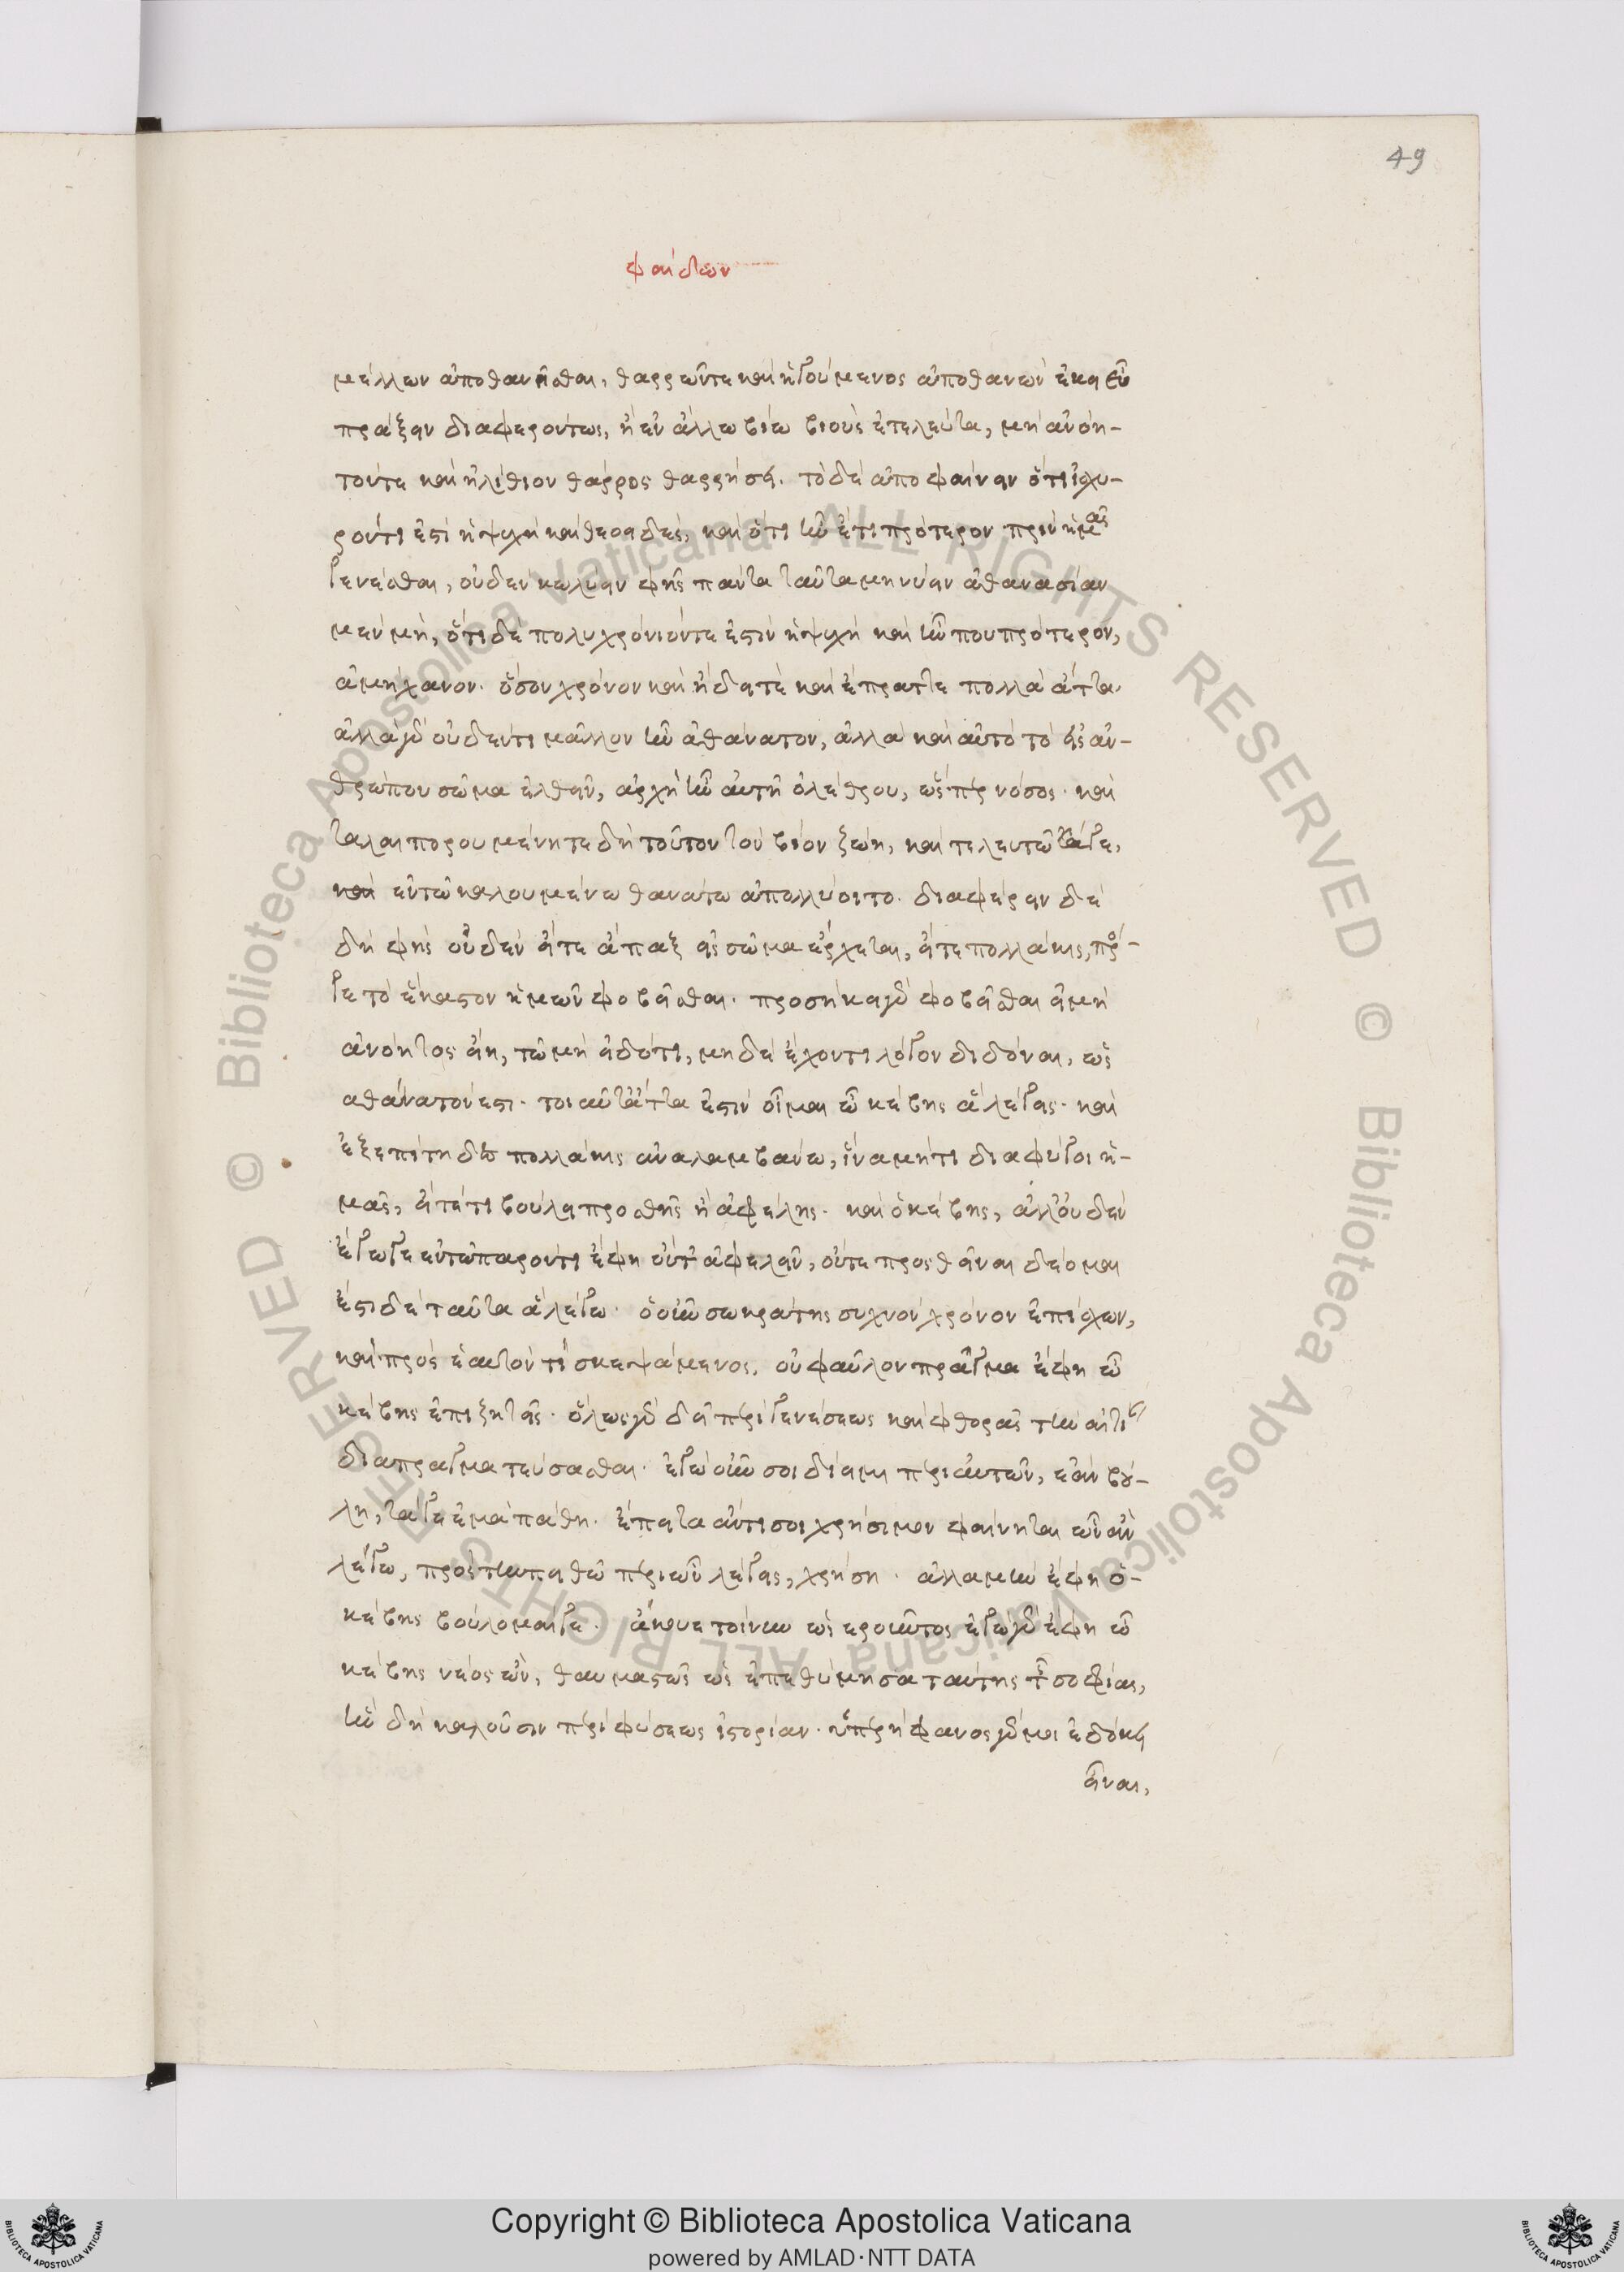 49
φαίδων
μέλλων ἀποθανεῖσθαι, θαρρῶν τε καὶ ἡγούμενος ἀποθανὼν ἐκεῖ εὖ
πράξειν διαφερόντως, ἢ ἐν ἄλλω βίω βιοὺς ἐτελεύτα, μὴ ἀνόη-
τόν τε καὶ ἠλίθιον θάρρος θαρρήσει. τὸ δὲ ἀποφαίνειν ὅτι ἰσχυ-
ρόν τί ἐστὶ ἡ ψυχὴ καὶ θεοειδὲς, καὶ ὅτι ἦν ἔτι πρότερον πρὶν ἡμᾶς
γενέσθαι, οὐδὲν κωλύειν φὴς πάντα ταῦτα μηνύειν ἀθανασίαν
μὲν μὴ, ὅτι δὲ πολυχρόνιόν τε ἐστὶν ἡ ψυχὴ καὶ ἦν που πρότερον,
ἀμήχανον ὅσον χρόνον καὶ ἤδει τὲ καὶ ἔπραττε πολλὰ ἄττα·
ἀλλὰ γὰρ οὐδέν τι μᾶλλον ἦν ἀθάνατον, ἀλλὰ καὶ αὐτὸ τὸ εἰς ἀν-
θρώπου σῶμα ἐλθεῖν, ἀρχὴ ἦν αὐτῆ ὀλέθρου, ὥσπερ νόσος· καὶ
ταλαιπορουμένη τε δὴ τοῦτον τὸν βίον ζώη, καὶ τελευτῶσά γε,
καὶ ἐν τῶ καλουμένω θανάτω ἀπολλύοιτο. διαφέρειν δὲ
δὴ φὴς οὐδὲν εἴτε ἅπαξ εἰς σῶμα ἔρχεται, εἴτε πολλάκις, πρός
γε τὸ ἕκαστον ἡμῶν φοβεῖσθαι· προσήκει γὰρ φοβεῖσθαι εἰ μὴ
ἀνόητος εἴη, τῶ μὴ εἰδότι, μηδὲ ἔχοντι λόγον διδόναι, ὡς
ἀθάνατόν ἐστι· τοιαῦτ' ἄττα ἐστὶν οἶμαι ὦ κέβης ἃ λέγεις· καὶ
ἐξεπίτηδες πολλάκις ἀναλαμβάνω, ἵνα μή τι διαφύγοι ἡ-
μᾶς, εἴτέ τι βούλει προσθῆς ἢ ἀφέλης· καὶ ὁ κέβης, ἀλλ' οὐδὲν
ἔγωγε ἐν τῶ παρόντι ἔφη οὔτ' ἀφελεῖν, οὔτε προσθεῖναι δέομαι
ἔστι δὲ ταῦτα ἃ λέγω· ὁ οὖν σωκράτης συχνὸν χρόνον ἐπισχὼν,
καὶ πρὸς ἑαυτόν τι σκεψάμενος, οὐ φαῦλον πρᾶγμα ἔφη ὦ
κέβης ἐπιζητεῖς· ὅλως γὰρ δεῖ περὶ γενέσεως καὶ φθορᾶς τὴν αἰτίαν
διαπραγματεύσασθαι· ἐγὼ οὖν σοι δίειμι περὶ αὐτῶν, ἐὰν βού-
λη, τά γε ἐμὰ πάθη· ἔπειτα ἄν τι σοι χρήσιμον φαίνηται ὧν ἂν
λέγω, πρὸς τὴν πειθὼ περὶ ὧν λέγεις, χρήση· ἀλλὰ μὴν ἔφη ὁ
κέβης βούλομαί γε· ἄκουε τοίνυν ὡς ἐροῦντος ἐγὼ γὰρ ἔφη ὦ
κέβης νέος ὢν, θαυμαστῶς ὡς ἐπεθύμησα ταύτης τῆς σοφίας,
ἣν δὴ καλοῦσιν περὶ φύσεως ἱστορίαν· ὑπερήφανος γάρ μοι ἐδόκει
εἶναι,
Copyright © Biblioteca Apostolica Vaticana
powered by AMLAD·NTT DATA